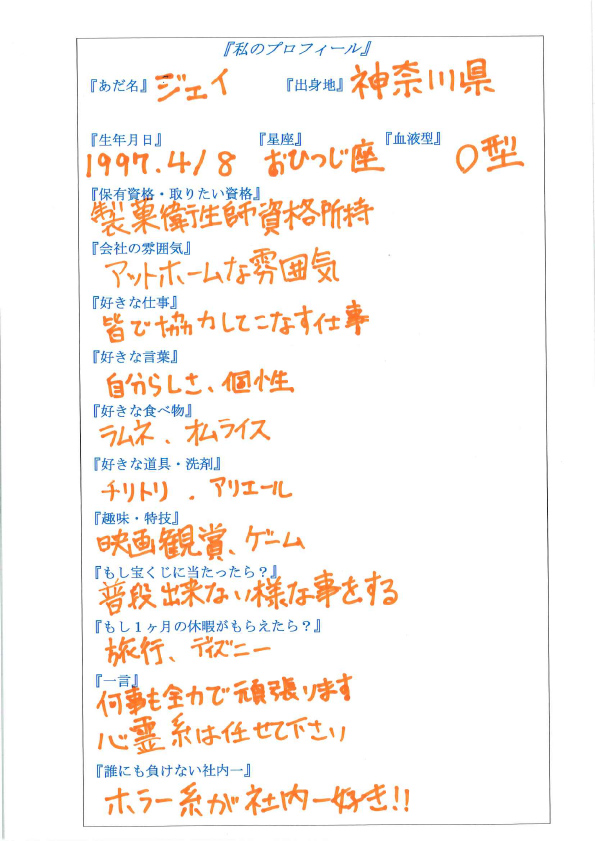 『私のプロフィール』
『あだ名』 ジェイ 『出身地』 神奈川県
『生年月日』 『星座』 『血液型』
1997.4/8 おひつじ座 O型
『保有資格・取りたい資格』
製菓衛生師資格所持
『会社の雰囲気』
アットホームな雰囲気
『好きな仕事』
皆で協力してこなす仕事
『好きな言葉』
自分らしさ、個性
『好きな食べ物』
ラムネ、オムライス
『好きな道具・洗剤』
チリトリ . アリエール
『趣味・特技』
映画観賞、ゲーム
『もし宝くじに当たったら？』
普段出来ない様な事をする
『もし１ヶ月の休暇がもらえたら？』
旅行、ディズニー
『一言』
何事も全力で頑張ります
心霊系は任せて下さい
『誰にも負けない社内一』
ホラー系が社内一好き!!